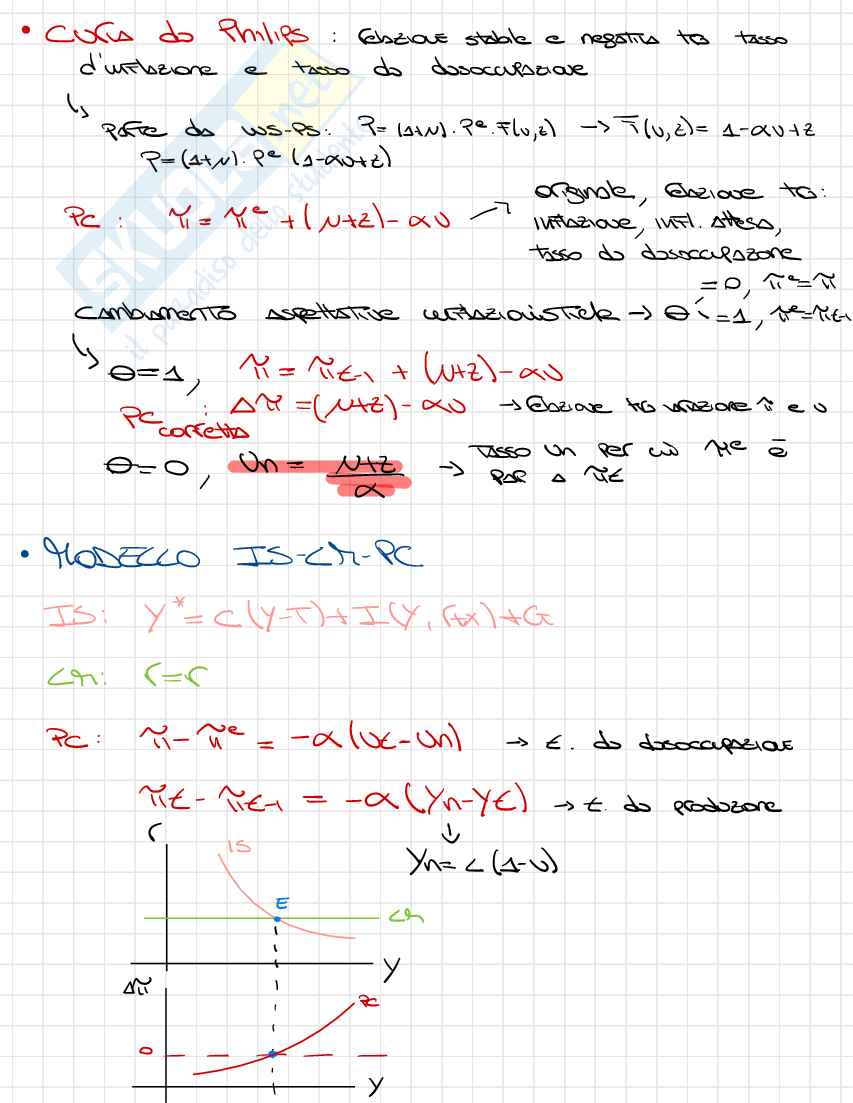 • CURVA di Philips : relazione stabile e negativa tra tasso
d'inflazione e tasso di disoccupazione
↳ parte da WS-PS: P=(1+μ)·Pᵉ·F(u,z) → F(u,z)= 1-αu+z
P=(1+μ)·Pᵉ(1-αu+z)
PC: π=πᵉ+(μ+z)-αu → originale, relazione tra:
inflazione, infl. attesa,
tasso di disoccupazione
Cambiamento aspettative inflazionistiche → θ =0, πᵉ=π̄
=1, πᵉ=πt-1
↳ θ=1, π=πt-1 + (μ+z)-αu
PC corretta : Δπ=(μ+z)-αu → relazione tra variazione π e u
θ=0, Un = μ+z / α → Tasso Un per cui πᵉ è
pari a πt
• MODELLO IS-LM-PC
IS: Y*=C(Y-T)+I(Y, r+x)+G
LM: r=r̄
PC: π-πᵉ = -α(Ut-Un) → t. di disoccupazione
πt-πt-1 = -α(Yn-Yt) → t. di produzione
↓
Yn=L(1-U)
r
IS
E
LM
Y
Δπ
PC
0
Y
SKUOLA.net
il paradiso dello studente